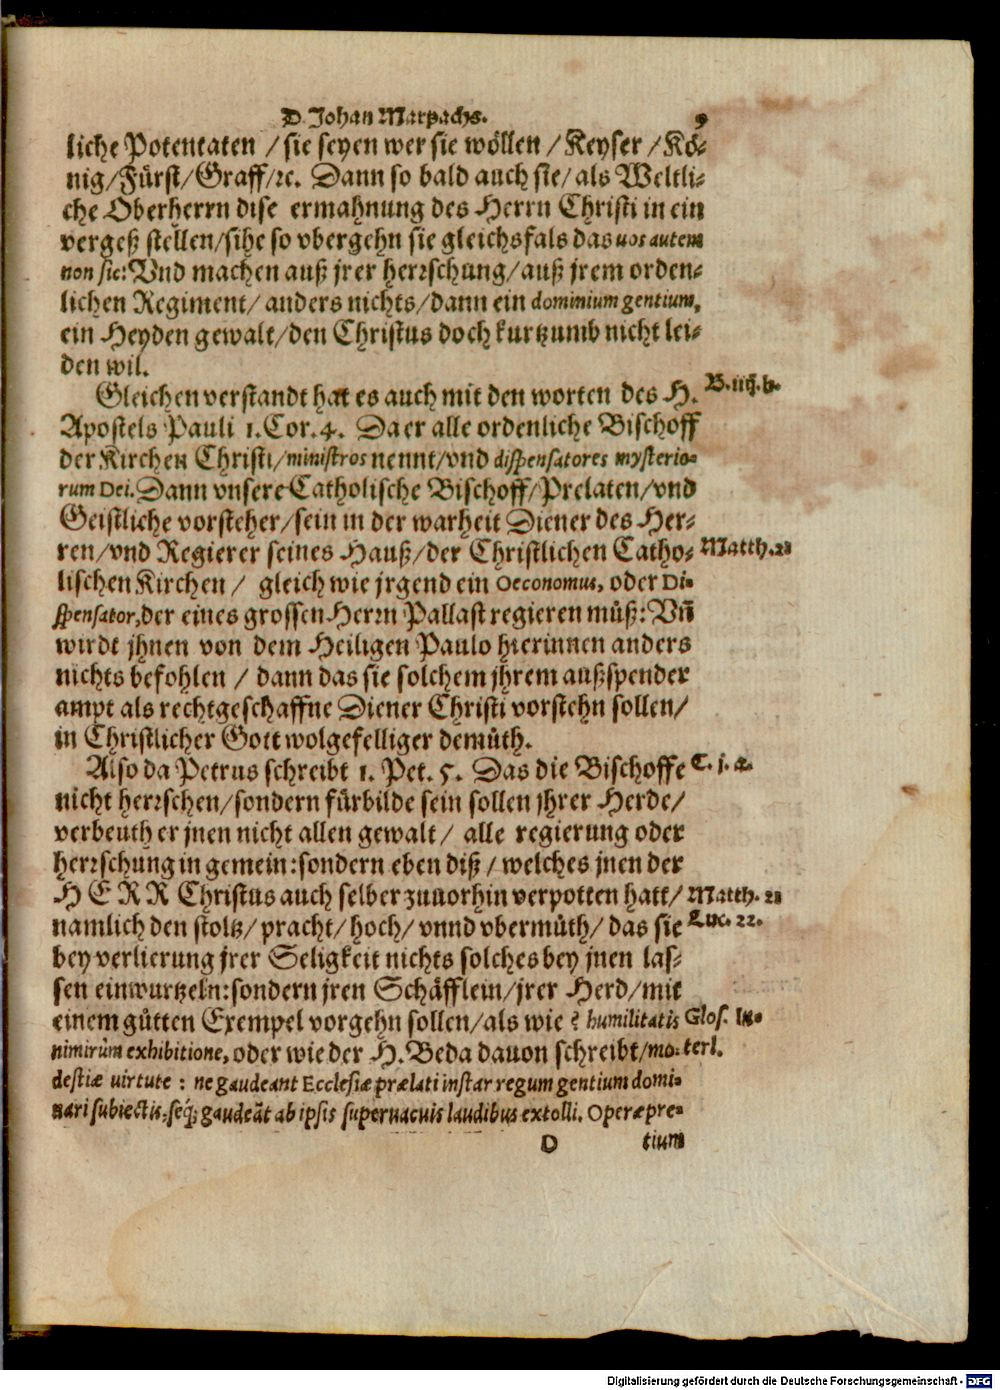 D. Johan Marpachs. 9
liche Potentaten / sie seyen wer sie wöllen / Keyser / Kö-
nig/Fürst/Graff/ꝛc. Dann so bald auch sie/ als Weltli-
che Oberherrn dise ermahnung des Herrn Christi in ein
vergeß stellen/sihe so vbergehn sie gleichsfals das uos autem
non sic: Vnd machen auß jrer herrschung/auß jrem orden-
lichen Regiment/ anders nichts/dann ein dominium gentium,
ein Heyden gewalt/den Christus doch kurtzumb nicht lei-
den wil.
Gleichen verstandt hat es auch mit den worten des H. B. iiij. b.
Apostels Pauli 1. Cor. 4. Da er alle ordenliche Bischoff
der Kirchen Christi/ministros nennt/vnd dispensatores mysterio-
rum Dei. Dann vnsere Catholische Bischoff/Prelaten/vnd
Geistliche vorsteher/sein in der warheit Diener des Her-
ren/vnd Regierer seines Hauß/der Christlichen Catho- Matth. 21
lischen Kirchen / gleich wie jrgend ein Oeconomus, oder Di-
spensator, der eines grossen Herrn Pallast regieren müß: Vñ
wirdt jhnen von dem Heiligen Paulo hierinnen anders
nichts befohlen / dann das sie solchem jhrem außspender
ampt als rechtgeschaffne Diener Christi vorstehn sollen/
in Christlicher Gott wolgefelliger demüth.
Also da Petrus schreibt 1. Pet. 5. Das die Bischoffe C. j. a.
nicht herrschen/sondern fürbilde sein sollen jhrer Herde/
verbeuth er jnen nicht allen gewalt/ alle regierung oder
herrschung in gemein: sondern eben diß / welches jnen der
HERR Christus auch selber zuuorhin verpotten hatt/ Matth. 21
namlich den stoltz/ pracht/ hoch/ vnnd vbermüth/ das sie Luc. 22.
bey verlierung jrer Seligkeit nichts solches bey jnen las-
sen einwurtzeln: sondern jren Schäfflein/jrer Herd/mit
einem gütten Exempel vorgehn sollen/als wie? humilitatis Glos. In-
nimirùm exhibitione, oder wie der H. Beda dauon schreibt/mo- terl.
destiæ uirtute : ne gaudeant Ecclesiæ prælati instar regum gentium domi-
nari subiectis, seq́; gaudeãt ab ipsis superuacuis laudibus extolli. Operæpre-
D tium
Digitalisierung gefördert durch die Deutsche Forschungsgemeinschaft - DFG